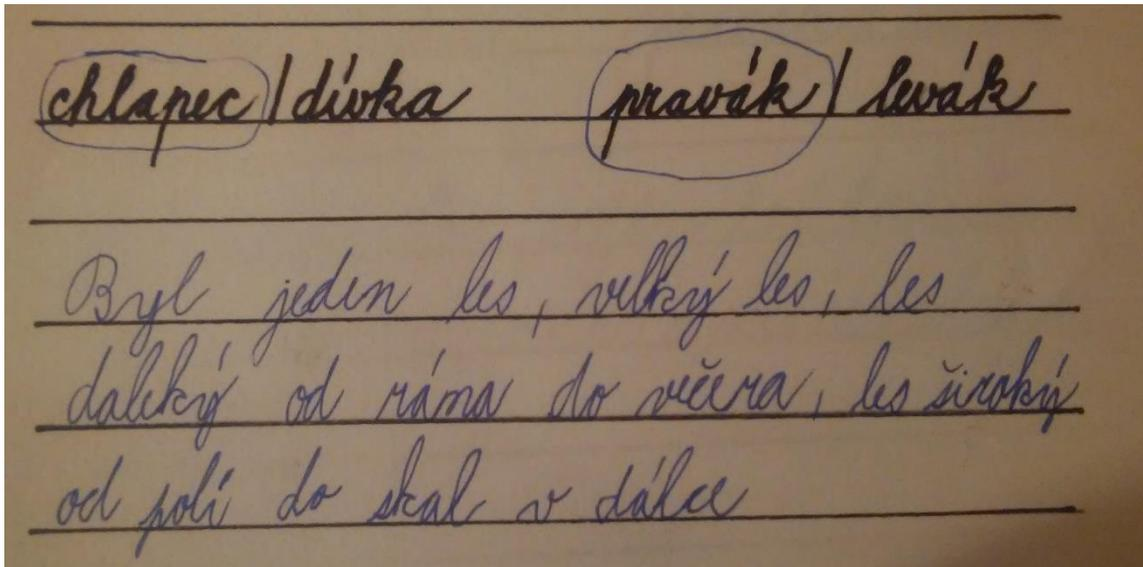 chlapec / dívka pravák / levák
Byl jeden les, velký les, les
daleký od rána do večera, les široký
od polí do skal v dálce